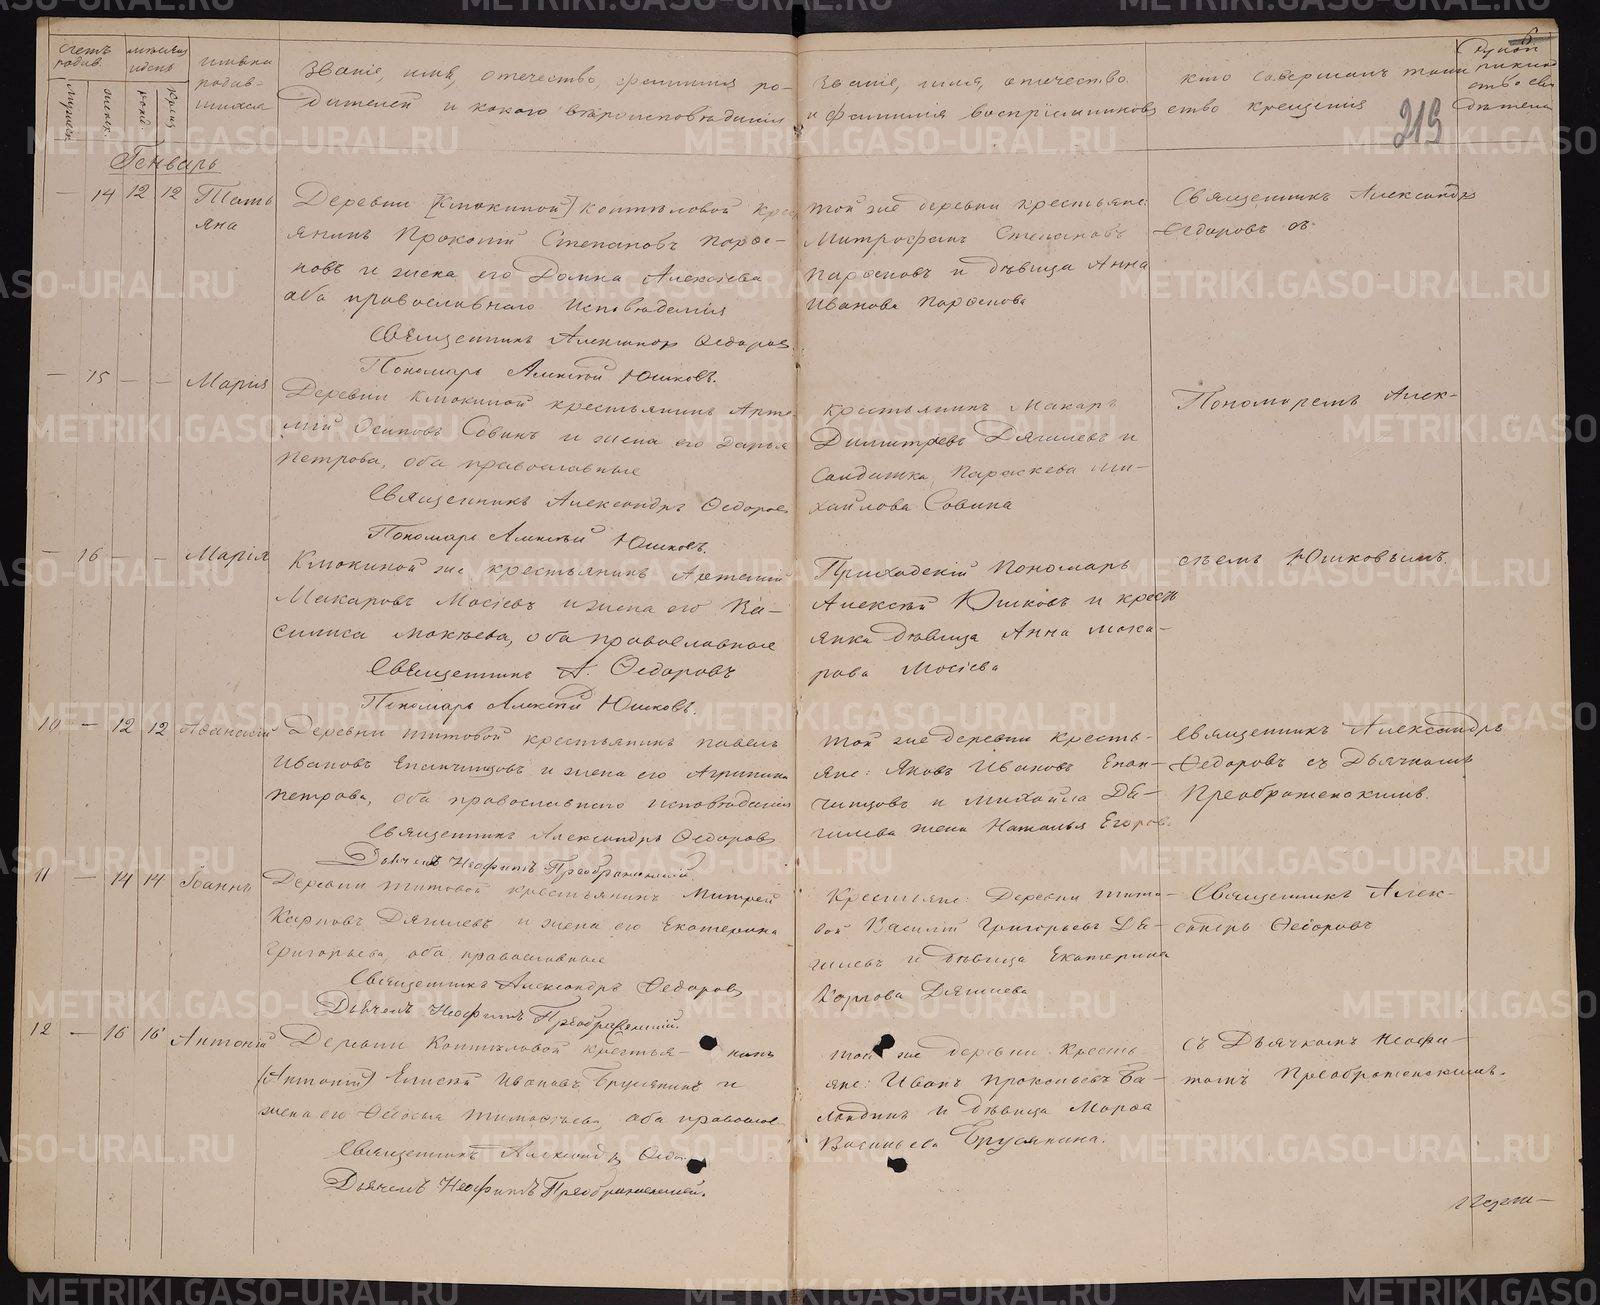 Счетъ родив.
мѣсяцъ и день
имена родив-
шихся
Званіе, имя, отечество, фамилія ро-
дителей и какого вѣроисповѣданія
Званіе, имя, отечество
и фамилія воспріемниковъ
кто совершалъ таин
ство крещенія
219
Генварь
— 14 12 12 Тать
яна
Деревни [Клюкиной] Коптѣловой крес
янинъ Прокопій Степановъ
и жена его Домна Алексіева
оба православнаго исповѣданія
Священникъ Александр Ѳедоров
Пономарь Алексѣй Юшковъ.
той же деревни крестьяне:
Митрофанъ Степановъ
и дѣвица Анна
Иванова
Священникъ Александр
Ѳедоровъ съ
— 15 — — Марія
Деревни Клюкиной крестьянинъ Арте
мій Осиповъ Совинъ и жена его Дарья
Петрова, оба православные
Священникъ Александръ Ѳедоров
Пономарь Алексѣй Юшковъ.
Крестьянинъ Макаръ
Димитріевъ Дягилевъ и
Солдатка Параскева Ми-
хайлова Совина
Пономоремъ Алек-
— 16 — — Марія
Клюкиной же крестьянинъ Артемій
Макаровъ Мосіевъ и жена его Ва-
силиса Мокѣева, оба православные
Священникъ А. Ѳедоровъ
Пономарь Алексѣй Юшковъ.
Приходскій Пономарь
Алексѣй Юшковъ и крест
янка дѣвица Анна Мака-
рова Мосіева
сѣемъ Юшковымъ.
10 — 12 12 Аѳанасій
Деревни Титовой крестьянинъ Павелъ
Ивановъ Епанчинцовъ и жена его Агрипина
Петрова, оба православнаго исповѣданія
Священникъ Александръ Ѳедоров
Дьячекъ Неофитъ Преображенскій.
той же деревни кресть-
яне: Яковъ Ивановъ Епан-
чинцовъ и Михайла Дя-
гилева жена Наталья Егоров.
Священникъ Александръ
Ѳедоровъ съ Дьячкомъ
Преображенскимъ.
11 — 14 14 Іоаннъ
Деревни Титовой крестьянинъ Митрей
Карповъ Дягилевъ и жена его Екатерина
Григорьева, оба православные
Священникъ Александръ Ѳедоров
Дьячекъ Неофитъ Преображенскій.
Крестьяне: Деревни Тито-
вой Василій Григорьевъ Дя-
гилевъ и дѣвица Екатерина
Карпова Дягилева
Священникъ Алек-
сандръ Ѳедоровъ
12 — 16 16 Антоній
Деревни Коптѣловой крестья- нинъ
(Антоній) Елисѣй Ивановъ Брусянинъ и
жена его Ѳедосья Тимофѣева, оба православ.
Священникъ Александр Ѳедо
Дьячекъ Неофитъ Преображенскій.
той же деревни Кресть
яне: Иванъ Прокопьевъ Ба-
ландинъ и дѣвица Марфа
Васильева Брусянина.
съ Дьячкомъ Неофи-
томъ Преображенскимъ.
METRIKI.GASO-URAL.RU